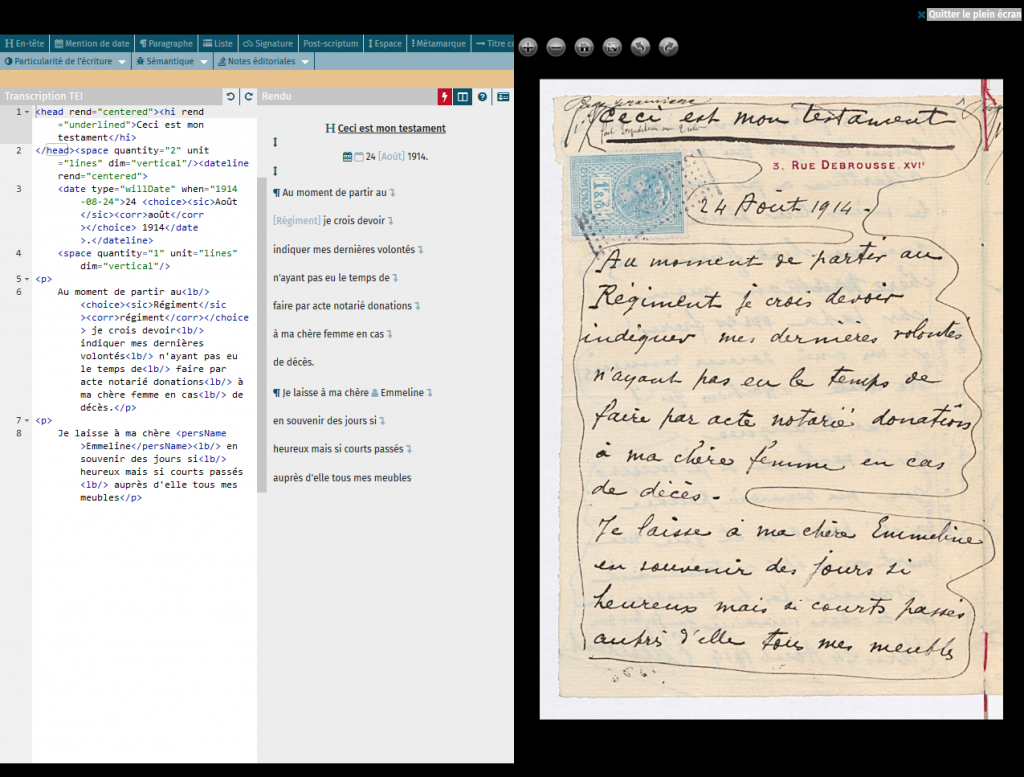 Quitter le plein écran
En-tête
Mention de date
Paragraphe
Liste
Signature
Post-scriptum
Espace
Métamarque
Titre co
Particularité de l'écriture
Sémantique
Notes éditoriales
Transcription TEI
1 <head rend="centered"><hi rend
="underlined">Ceci est mon
testament</hi>
2 </head><space quantity="2" unit
="lines" dim="vertical"/><dateline
rend="centered">
3 <date type="willDate" when="1914
-08-24">24 <choice><sic>Août
</sic><corr>août</corr
></choice> 1914</date
>.</dateline>
4 <space quantity="1" unit="lines"
dim="vertical"/>
5 <p>
6 Au moment de partir au<lb/>
<choice><sic>Régiment</sic
><corr>régiment</corr></choice
> je crois devoir<lb/>
indiquer mes dernières
volontés<lb/> n'ayant pas eu
le temps de<lb/> faire par
acte notarié donations<lb/> à
ma chère femme en cas<lb/> de
décès.</p>
7 <p>
8 Je laisse à ma chère <persName
>Emmeline</persName><lb/> en
souvenir des jours si<lb/>
heureux mais si courts passés
<lb/> auprès d'elle tous mes
meubles</p>
Rendu
Ceci est mon testament
24 [Août] 1914.
¶ Au moment de partir au
[Régiment] je crois devoir
indiquer mes dernières volontés
n'ayant pas eu le temps de
faire par acte notarié donations
à ma chère femme en cas
de décès.
¶ Je laisse à ma chère Emmeline
en souvenir des jours si
heureux mais si courts passés
auprès d'elle tous mes meubles
Ceci est mon testament
3, RUE DEBROUSSE. XVIe
24 Août 1914.
Au moment de partir au
Régiment je crois devoir
indiquer mes dernières volontés
n'ayant pas eu le temps de
faire par acte notarié donations
à ma chère femme en cas
de décès.
Je laisse à ma chère Emmeline
en souvenir des jours si
heureux mais si courts passés
auprès d'elle tous mes meubles